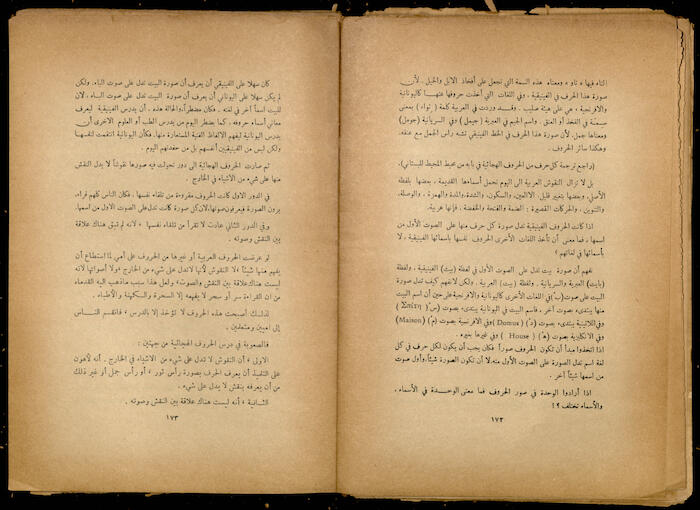 التاء فيها « تاو » ومعناه هذه السمة التي تجعل على أفخاذ الابل والخيل . لأن
صورة هذا الحرف في الفينيقية ، وفي اللغات التي أخذت حروفها عنها كاليونانية
والافرنجية ، هي على هيئة صليب . وقد وردت في العربية كلمة ( تواء ) بمعنى
سمة في الفخذ أو العنق . واسم الجيم في العبرية (جيمل) وفي السريانية (جومل)
ومعناها جمل. لأن صورة هذا الحرف في الخط الفينيقي تشبه رأس الجمل مع عنقه.
وهكذا سائر الحروف .
(راجع ترجمة كل حرف من الحروف الهجائية في بابه من محيط المحيط للبستاني).
بل لا تزال النقوش العربية الى اليوم تحمل أسماءها القديمة ، بعضها بلفظه
الأصلي ، وبعضها بتغير قليل . الا اللامين، والسكون، والشدة، والمدة والهمزة ، والوصلة،
والتنوين ، والحركات القصيرة : الضمة والفتحة والخفضة ، فإنها عربية .
اذا كانت الحروف الفينيقية تدل صورة كل حرف منها على الصوت الأول من
اسمها ، فما معنى أن تأخذ اللغات الأخرى الحروف نفسها بأسمائها الفينيقية ، لا
بأسمائها في لغاتهم ؟
نفهم أن صورة بيت تدل على الصوت الأول في لفظة (بيت) الفينيقية ، ولفظة
(بايت) العبرية والسريانية . ولفظة (بيت) العربية . ولكن لا نفهم كيف تدل صورة
البيت على صوت (ب) في اللغات الأخرى كاليونانية والافرنجية على حين أن اسم البيت
منها يبتدىء بصوت آخر . فاسم البيت في اليونانية يبتدىء بصوت (س)
وفي اللاتينية يبتدىء بصوت (د) ( Domus ) وفي الافرنسية بصوت (م) (Maison)
وفي الانكليزية بصوت (هـ) ( House ) وفي غيرها بغيره .
اذا اتخذوا مبدأ أن تكون الحروف صوراً فكان يجب أن يكون لكل حرف في كل
لغة اسم تدل الصورة على الصوت الأول منه. لا أن تكون الصورة شيئاً، وأول صوت
من اسمها شيئاً آخر .
اذا أرادوا الوحدة في صور الحروف فما معنى الوحدة في الأسماء .
والأسماء تختلف ؟!
١٧٢
كان سهلا على الفينيقي أن يعرف أن صورة البيت تدل على صوت الباء . ولكن
لم يكن سهلا على اليوناني أن يعرف أن صورة البيت تدل على صوت الباء ، لان
للبيت اسماً آخر في لغته . فكان مضطراً، والحالة هذه ، أن يدرس الفينيقية ليعرف
معاني أسماء حروفه ، كما يضطر اليوم من يدرس الطب أو العلوم الاخرى أن
يدرس اليونانية ليفهم الالفاظ الفنية المستعارة منها. فكأن اليونانية انتقمت لنفسها
ولكن ليس من الفينيقيين أنفسهم بل من حفدتهم اليوم .
ثم صارت الحروف الهجائية الى دور تحولت فيه صورها نقوشاً لا يدل النقش
منها على شيء من الأشياء في الخارج .
في الدور الاول كانت الحروف مقروءة من تلقاء نفسها ، فكان الناس كلهم قراء،
يرون الصورة فيعرفون صوتها، لان كل صورة كانت تدل على الصوت الاول من اسمها.
وفي الدور الثاني عادت لا تقرأ من تلقاء نفسها ، لأنه لم تبق هناك علاقة
بين النقش وصوته .
لو عرضت الحروف العربية أو غيرها من الحروف على أمي لما استطاع أن
يفهم منها شيئاً ، لا النقوش لأنها لا تدل على شيء من الخارج ، ولا أصواتها لانه
ليست هناك علاقة بين النقش والصوت، ولعل هذا سبب ما ذهب اليه القدماء
من ان القراءة سر أو سحر لا يفهمه إلا السحرة والسكهنة والأطباء .
لذلك أصبحت هذه الحروف لا تؤخذ إلا بالدرس ، فانقسم الناس
إلى اميين ومتعلمين .
فالصعوبة في درس الحروف الهجائية من جهتين :
الاولى ، أن النقوش لا تدل على شيء من الاشياء في الخارج . أنه لأهون
على التلميذ أن يعرف الحرف بصورة رأس ثور ، أو رأس جمل أو غير ذلك
من أن يعرفه بنقش لا يدل على شيء .
الثانية ، أنه ليست هناك علاقة بين النقش وصوته .
١٧٣